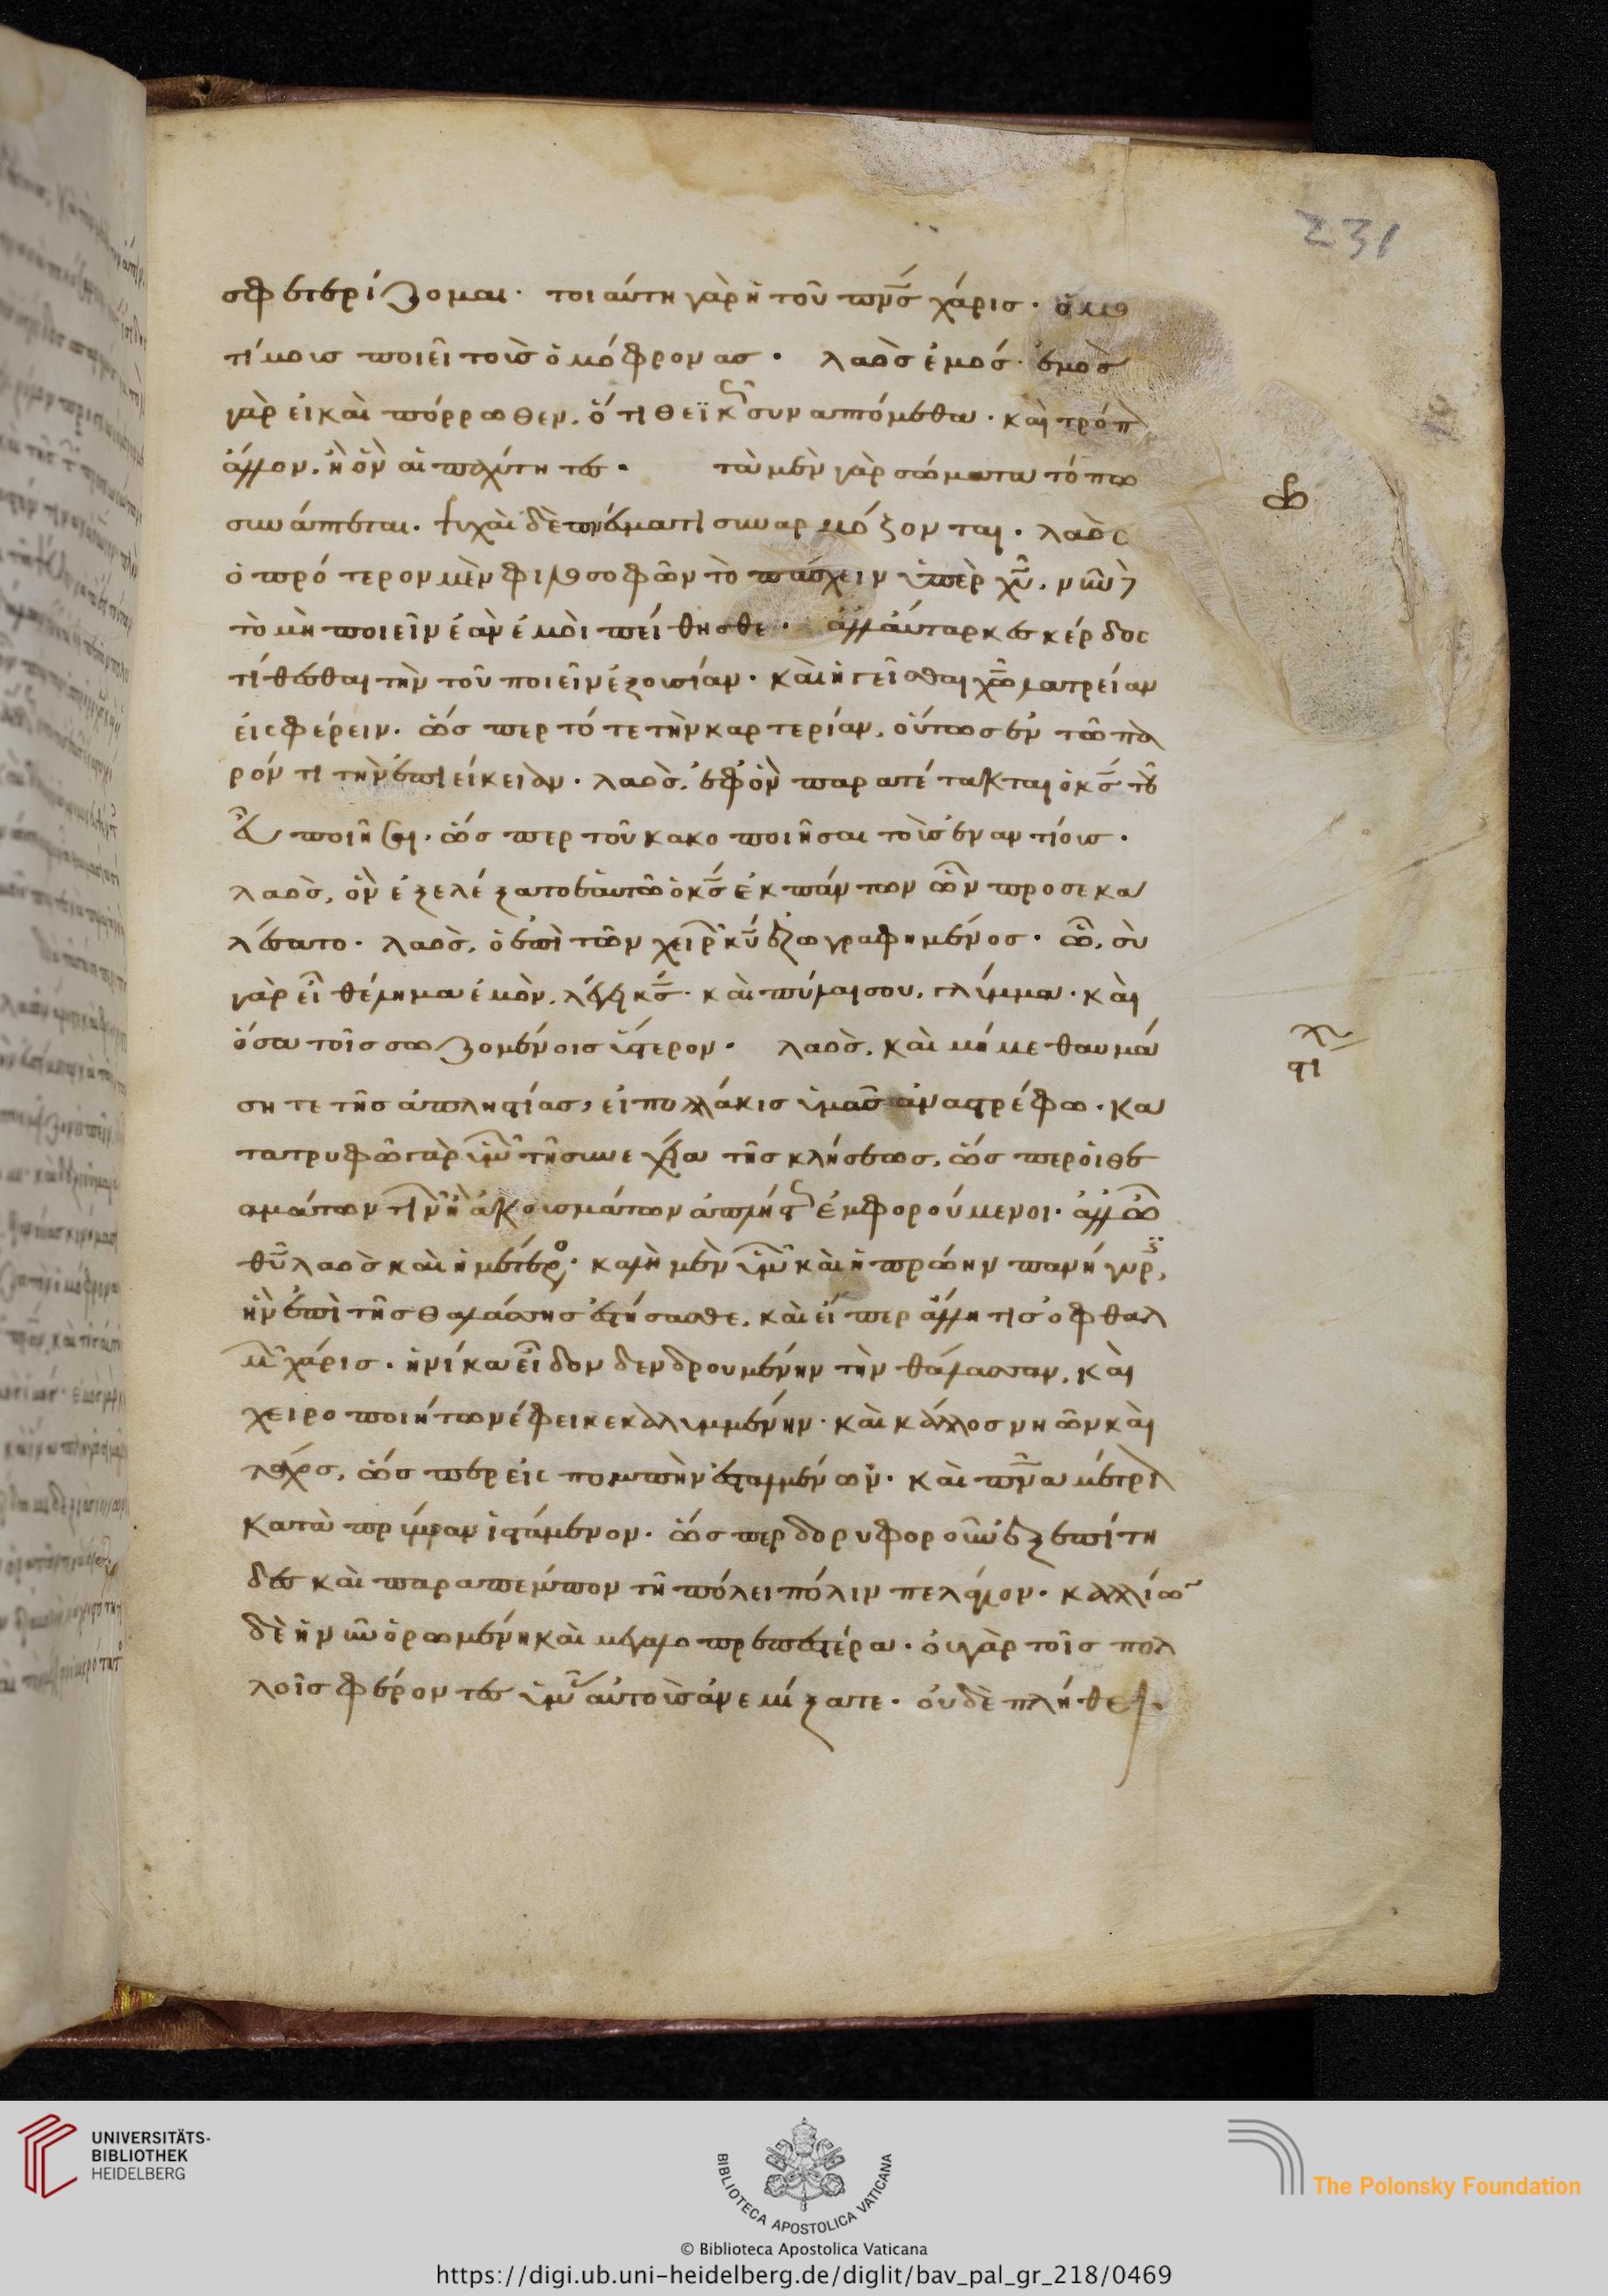 σφετερίζομαι· τοιαύτη γὰρ ἡ τοῦ πν̅ς χάρις· ὁμο
τίμους ποιεῖ τοὺς ὁμόφρονας· λαὸς ἐμός· ἐμὸς
γὰρ εἰ καὶ πόρρωθεν, ὅτι θεϊκῶς συναπτόμεθα· καὶ τρόπον
ἄλλον, ἢ ὃν αἱ παχύτητες· τὰ μὲν γὰρ σώματα τόπω
συνάπτεται. ψυχαὶ δὲ πνεύματι συναρμόζονται. λαὸς
ὁ πρότερον μὲν φιλοσοφῶν τὸ πάσχειν ὑπὲρ χυ̅, νῦν δὲ
τὸ μὴ ποιεῖν ἐὰν ἐμοὶ πείθησθε· ἀλλ' αὔταρκες κέρδος
τίθεσθαι τὴν τοῦ ποιεῖν ἐξουσίαν· καὶ ἡγεῖσθαι χω̅ λατρείαν
εἰσφέρειν· ὥσπερ τότε τὴν καρτερίαν, οὕτως ἐν τῶ πα
ρόντι τὴν ἐπιείκειαν· λαὸς, ἐφ' ὃν παρατέτακται ὁ κς̅ τοῦ
εὖ ποιῆσαι, ὥσπερ τοῦ κακοποιῆσαι τοὺς ἐναντίους·
λαὸς, ὃν ἐξελέξατο ἑαυτῶ ὁ κς̅ ἐκ πάντων ὧν προσεκα
λέσατο· λαὸς, ὁ ἐπὶ τῶν χειρῶν κυ̅ ἐζωγραφημένος· ὧ, σὺ
γὰρ εἶ θέλημα ἐμὸν, λέγει κς̅· καὶ πύλαι σου, γλύμμα· καὶ
ὅσα τοῖς σωζομένοις ὕστερον· λαὸς, καὶ μή με θαυμά
σητε τῆς ἀπληστίας, εἰ πολλάκις ὑμᾶς ἀναστρέφω· κα
τατρυφῶ γὰρ ὑμῶν τῆ συνεχεία τῆς κλήσεως, ὥσπερ οἱ θε
αμάτων τινῶν ἢ ἀκουσμάτων ἀπλήστως ἐμφορούμενοι· ἀλλ' ὦ
θυ̅ λαὸς καὶ ἡμέτερος· καλὴ μὲν ὑμῶν καὶ ἡ πρώην πανήγυρις,
ἣν ἐπὶ τῆς θαλάσσης ἐστήσασθε, καὶ εἴπερ ἄλλη τις ὀφθαλ
μῶν χάρις· ἡνίκα εἶδον δενδρουμένην τὴν θάλασσαν, καὶ
χειροποιήτω νέφει κεκαλυμμένην· καὶ κάλλος νηῶν καὶ
τάχος, ὥσπερ εἰς πομπὴν ἐσταλμένων· καὶ πνεῦμα μέτριον
κατὰ πρύμναν ἱστάμενον· ὥσπερ δορυφοροῦν ἐξεπίτη
δες καὶ παραπέμπον τῆ πόλει πόλιν πελάγιον· καλλίων
δὲ ἡ νῦν ὁρωμένη καὶ μεγαλοπρεπεστέρα· οὐ γὰρ τοῖς πολ
λοῖς φέροντες ὑμῶν αὐτοὺς ἀνεμίξατε· οὐδὲ πλήθει.
231
στι
UNIVERSITÄTS-
BIBLIOTHEK
HEIDELBERG
BIBLIOTECA APOSTOLICA VATICANA
The Polonsky Foundation
© Biblioteca Apostolica Vaticana
https://digi.ub.uni-heidelberg.de/diglit/bav_pal_gr_218/0469